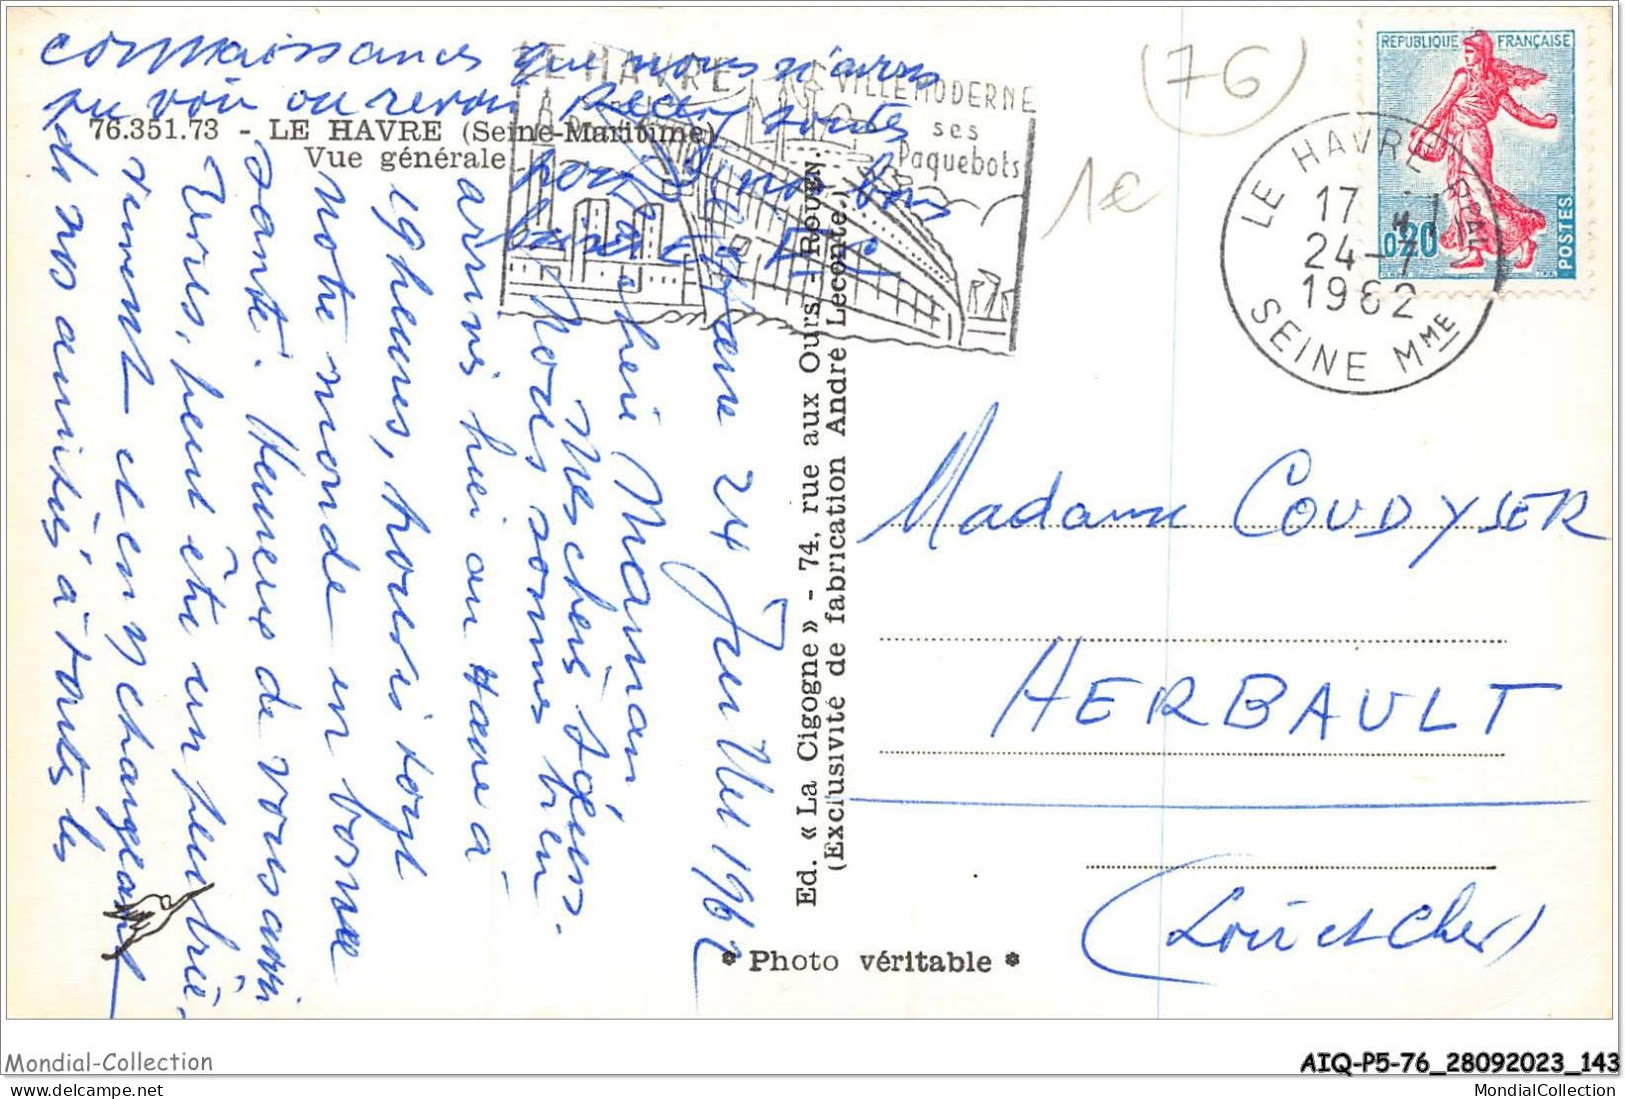 connaissances que nous n'avons
pu voir ou revoir. Recevez toutes
76.351.73 - LE HAVRE (Seine-Maritime)
Vue générale
LE HAVRE
Port
VILLE MODERNE
ses
Paquebots
pour nos bons
baisers
(76)
1€
REPUBLIQUE FRANÇAISE
0,20
POSTES
LE HAVRE PPAL
17 H
24-7
1962
SEINE MME
Le Havre 24 Juillet 1962
Ma chère Maman
Mes chères Sœurs.
Nous sommes bien
arrivés hier au Havre à
19 heures, nous voyons
notre monde en bonne
santé. Heureux de vous avoir
vues, peut être un peu brièvement
et en y changeant
de nos amitiés à toutes les
Ed. « La Cigogne » - 74, rue aux Ours - Rouen.
(Exclusivité de fabrication André Leconte.)
* Photo véritable *
Madame COUDYSER
HERBAULT
(Loir et Cher)
Mondial-Collection
AIQ-P5-76_28092023_143
MondialCollection
https://www.delcampe.net